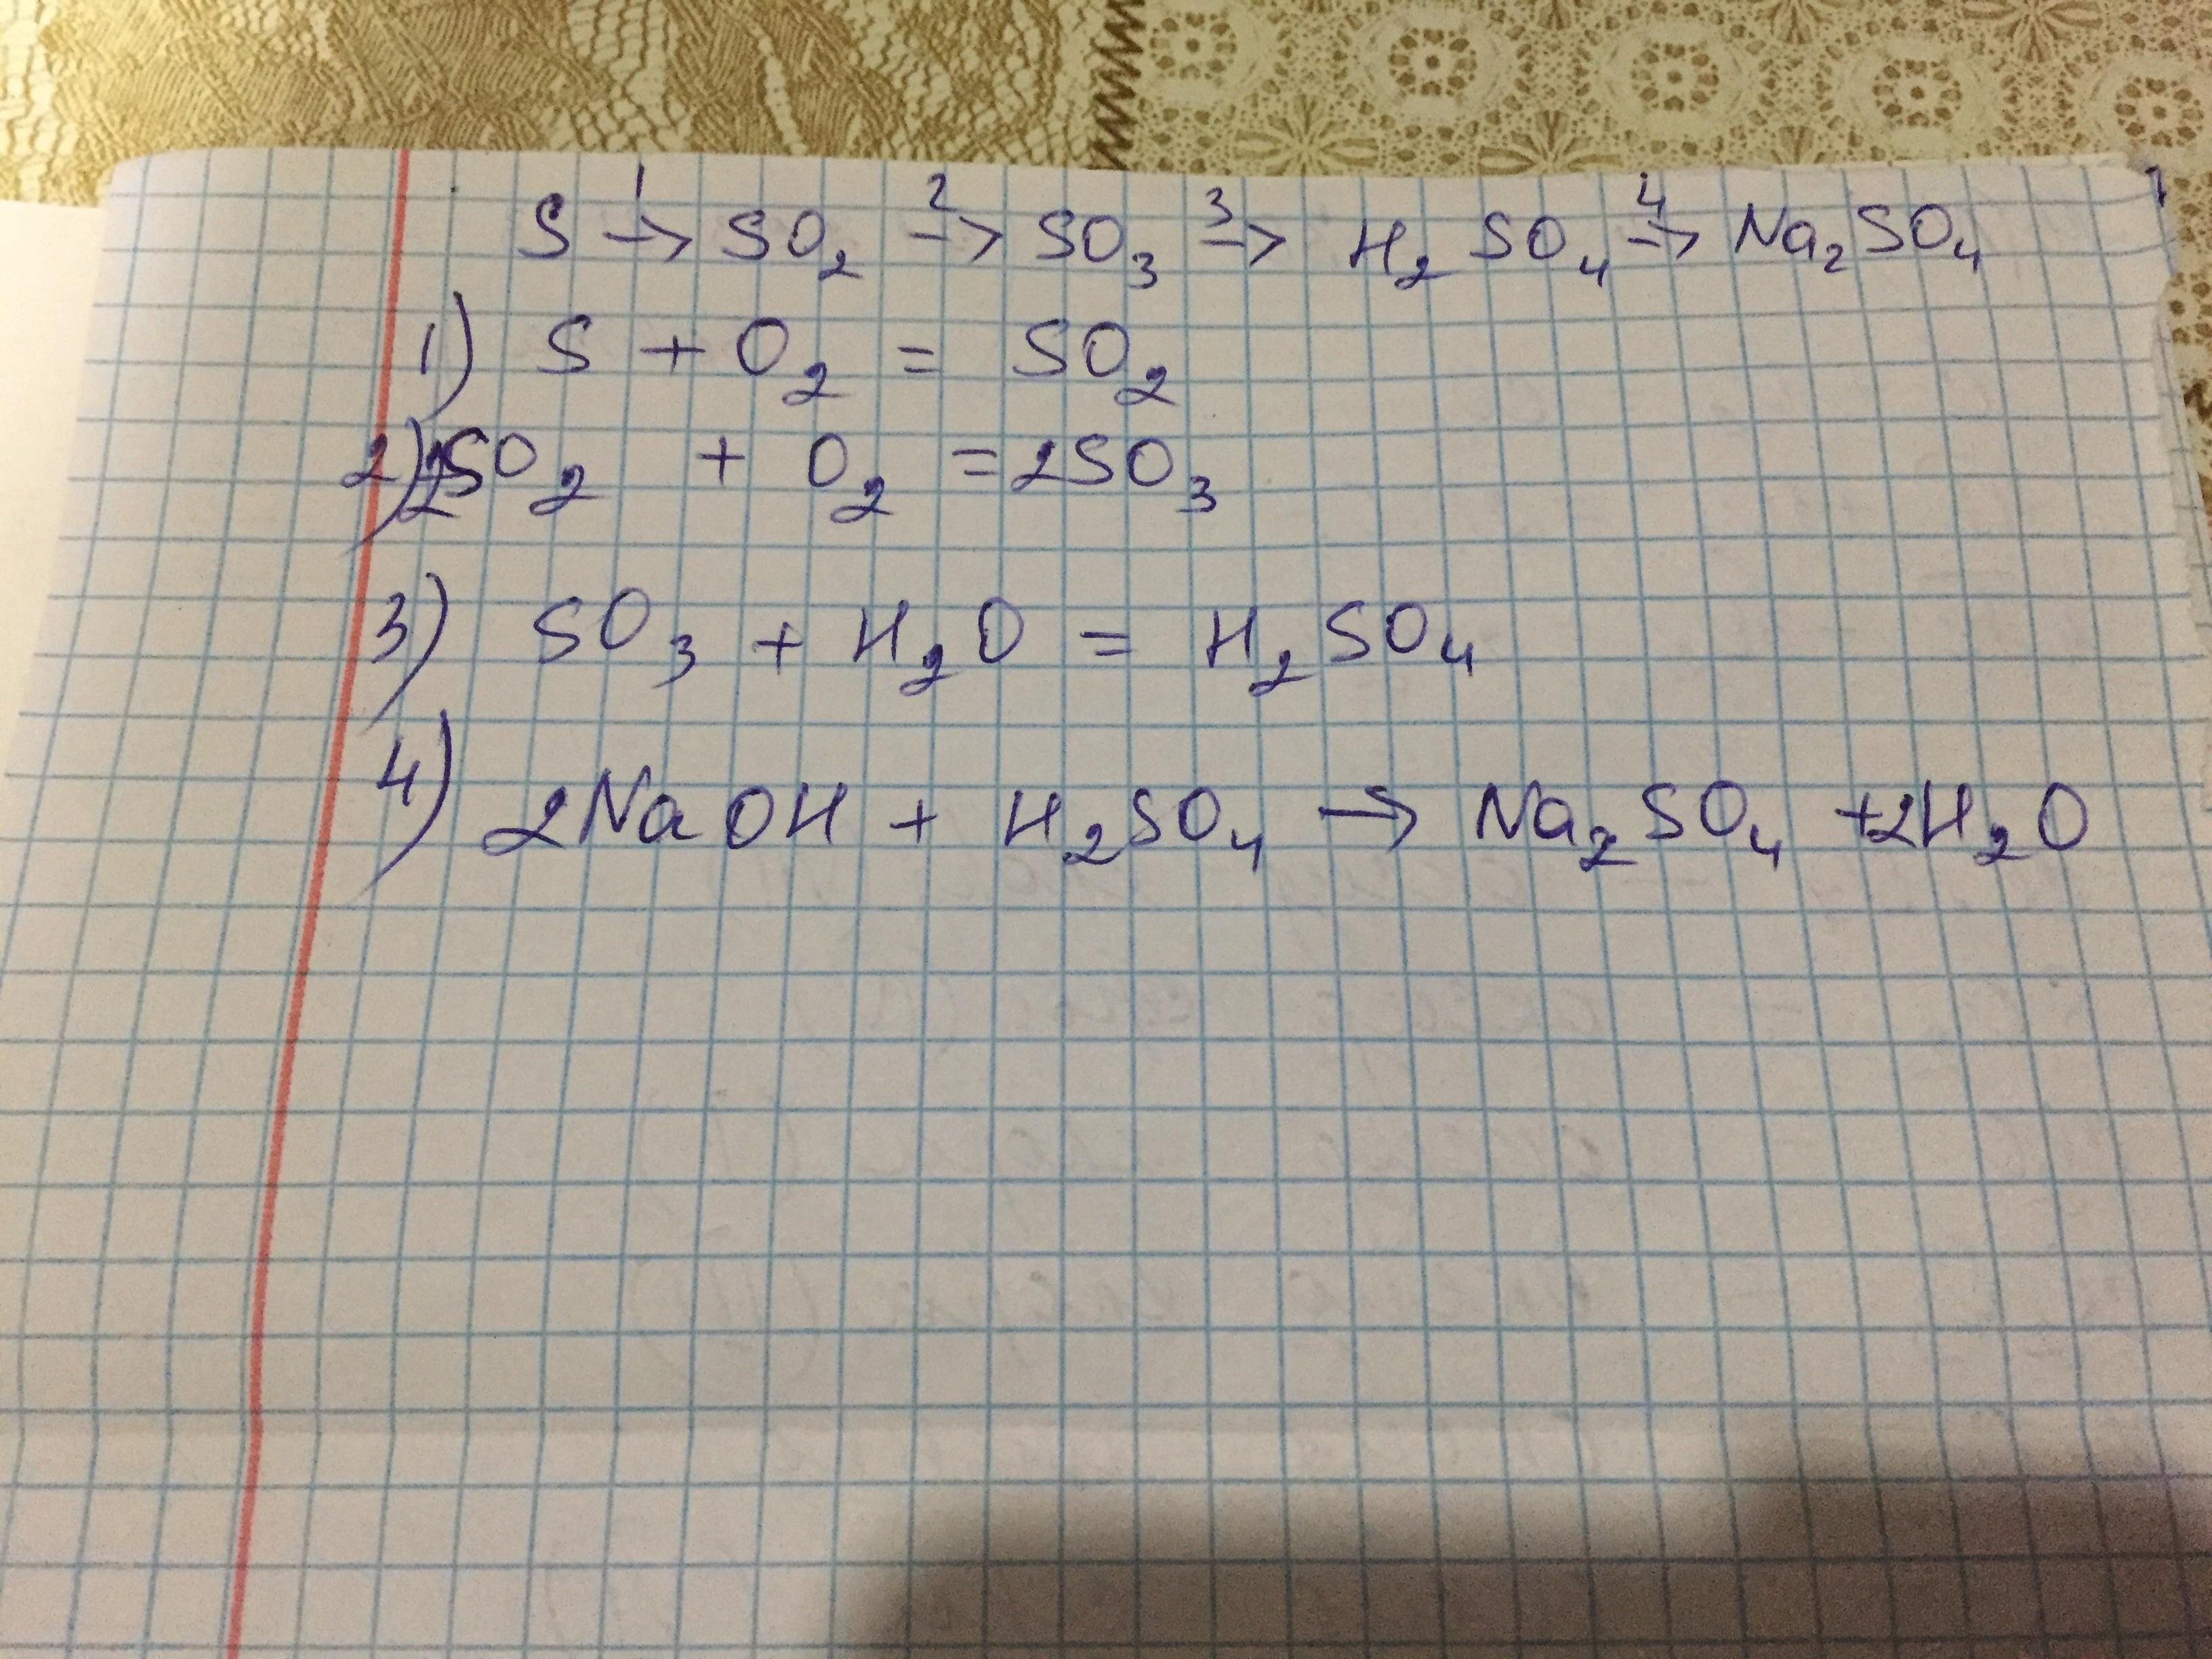 S →¹ SO₂ →² SO₃ →³ H₂SO₄ →⁴ Na₂SO₄
1) S + O₂ = SO₂
2) 2SO₂ + O₂ = 2SO₃
3) SO₃ + H₂O = H₂SO₄
4) 2NaOH + H₂SO₄ → Na₂SO₄ + 2H₂O